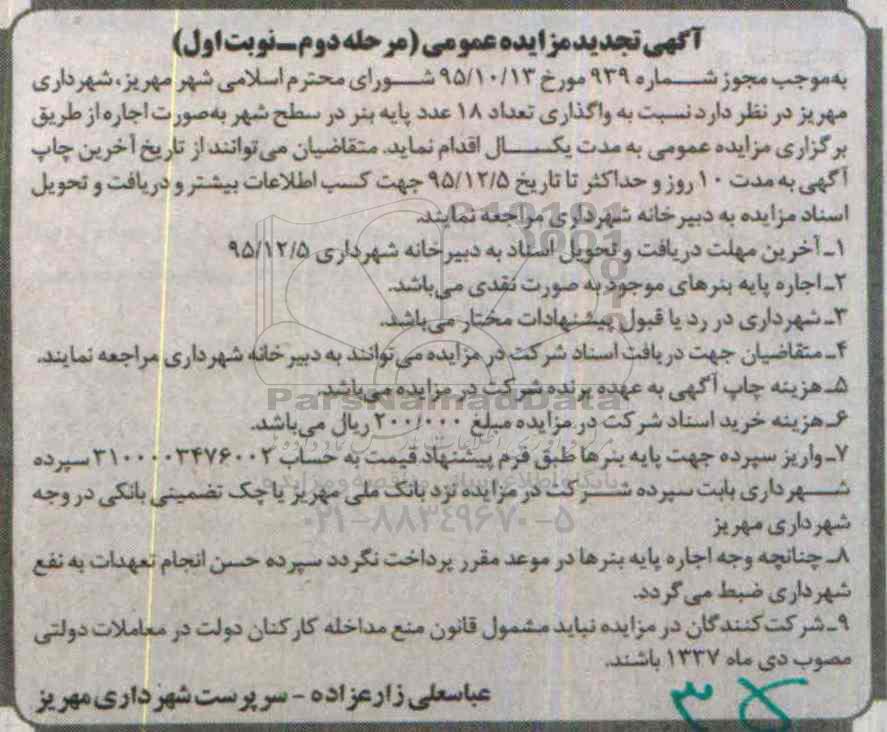 آگهی تجدید مزایده عمومی (مرحله دوم ـ نوبت اول)
به‌موجب مجوز شماره ۹۳۹ مورخ ۹۵/۱۰/۱۳ شورای محترم اسلامی شهر مهریز، شهرداری
مهریز در نظر دارد نسبت به واگذاری تعداد ۱۸ عدد پایه بنر در سطح شهر به‌صورت اجاره از طریق
برگزاری مزایده عمومی به مدت یکسال اقدام نماید. متقاضیان می‌توانند از تاریخ آخرین چاپ
آگهی به مدت ۱۰ روز و حداکثر تا تاریخ ۹۵/۱۲/۵ جهت کسب اطلاعات بیشتر و دریافت و تحویل
اسناد مزایده به دبیرخانه شهرداری مراجعه نمایند.
۱ـ آخرین مهلت دریافت و تحویل اسناد به دبیرخانه شهرداری ۹۵/۱۲/۵
۲ـ اجاره پایه بنرهای موجود به صورت نقدی می‌باشد.
۳ـ شهرداری در رد یا قبول پیشنهادات مختار می‌باشد.
۴ـ متقاضیان جهت دریافت اسناد شرکت در مزایده می‌توانند به دبیرخانه شهرداری مراجعه نمایند.
۵ـ هزینه چاپ آگهی به عهده برنده شرکت در مزایده می‌باشد.
ParsNamadData
۶ـ هزینه خرید اسناد شرکت در مزایده مبلغ ۲۰۰/۰۰۰ ریال می‌باشد.
۷ـ واریز سپرده جهت پایه بنرها طبق فرم پیشنهاد قیمت به حساب ۳۱۰۰۰۰۳۴۷۶۰۰۲ سپرده
شهرداری بابت سپرده شرکت در مزایده نزد بانک ملی مهریز یا چک تضمینی بانکی در وجه
شهرداری مهریز
۰۲۱-۸۸۳۴۹۶۷۰-۵
۸ـ چنانچه وجه اجاره پایه بنرها در موعد مقرر پرداخت نگردد سپرده حسن انجام تعهدات به نفع
شهرداری ضبط می‌گردد.
۹ـ شرکت‌کنندگان در مزایده نباید مشمول قانون منع مداخله کارکنان دولت در معاملات دولتی
مصوب دی ماه ۱۳۳۷ باشند.
عباسعلی زارعزاده - سرپرست شهرداری مهریز